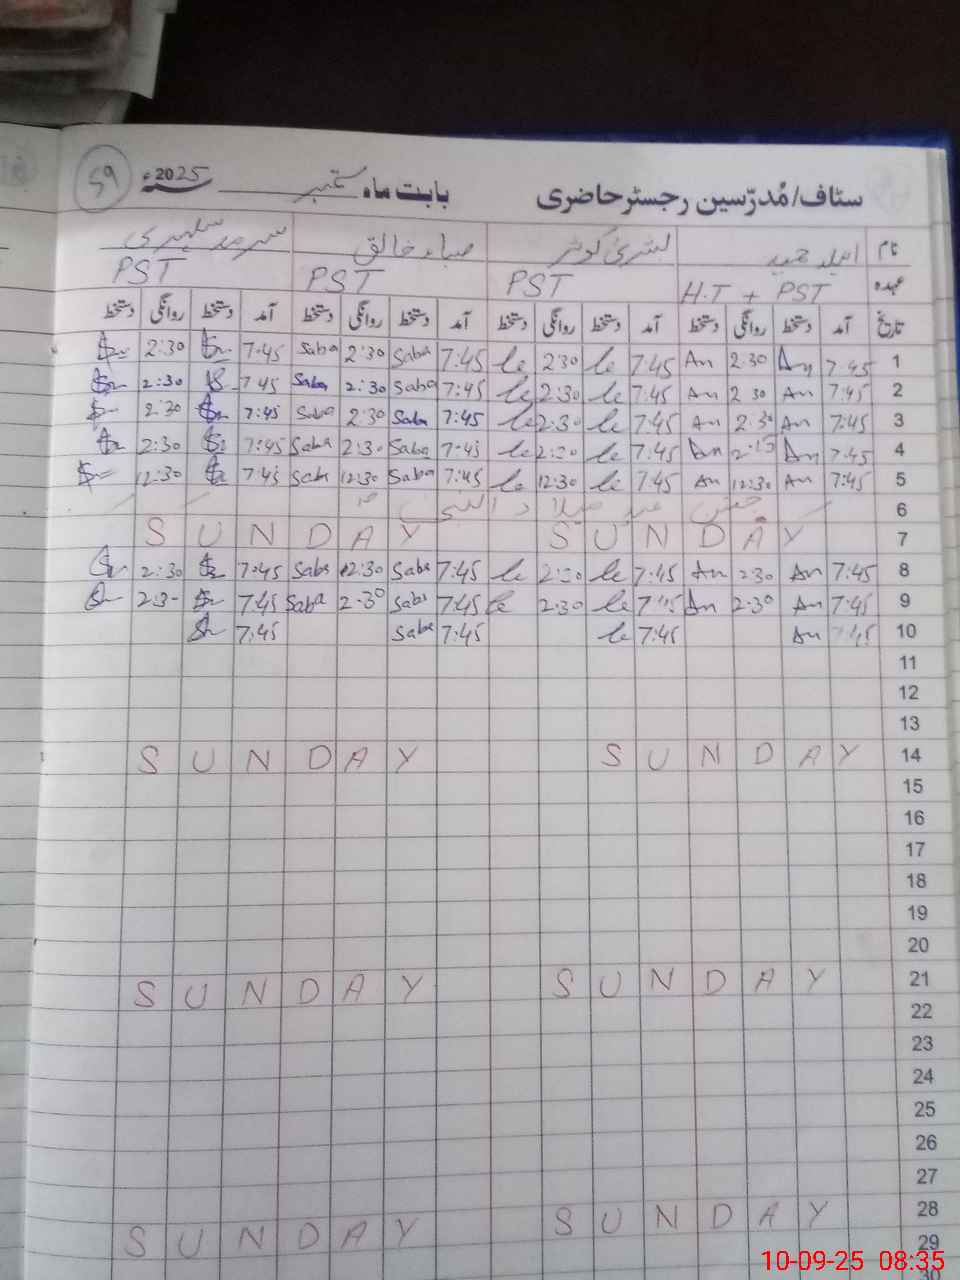 سٹاف/مُدرّسین رجسٹر حاضری بابت ماہ ستمبر 2025ء 59
نام صباء خالق
عہدہ H.T + PST PST PST PST
تاریخ آمد دستخط روانگی دستخط آمد دستخط روانگی دستخط آمد دستخط روانگی دستخط آمد دستخط روانگی دستخط
1 7:45 An 2:30 An 7:45 le 2:30 le 7:45 Saba 2:30 Saba 7:45 2:30
2 7:45 An 2:30 An 7:45 le 2:30 le 7:45 Saba 2:30 Saba 7:45 2:30
3 7:45 An 2:30 An 7:45 le 2:30 le 7:45 Saba 2:30 Saba 7:45 2:30
4 7:45 An An 7:45 le 2:30 le 7:45 Saba 2:30 Saba 7:45 2:30
5 7:45 An 12:30 An 7:45 le 12:30 le 7:45 Saba 12:30 Saba 7:45 12:30
6 جشن عید میلاد النبی
7 SUNDAY SUNDAY
8 7:45 An 2:30 An 7:45 le 2:30 le 7:45 Saba 2:30 Saba 7:45 2:30
9 7:45 An 2:30 An 7:45 le 2:30 le 7:45 Saba 2:30 Saba 7:45 2:30
10 7:45 An 7:45 le 7:45 Saba 7:45
11
12
13
14 SUNDAY SUNDAY
15
16
17
18
19
20
21 SUNDAY SUNDAY
22
23
24
25
26
27
28 SUNDAY SUNDAY
29
30
10-09-25 08:35